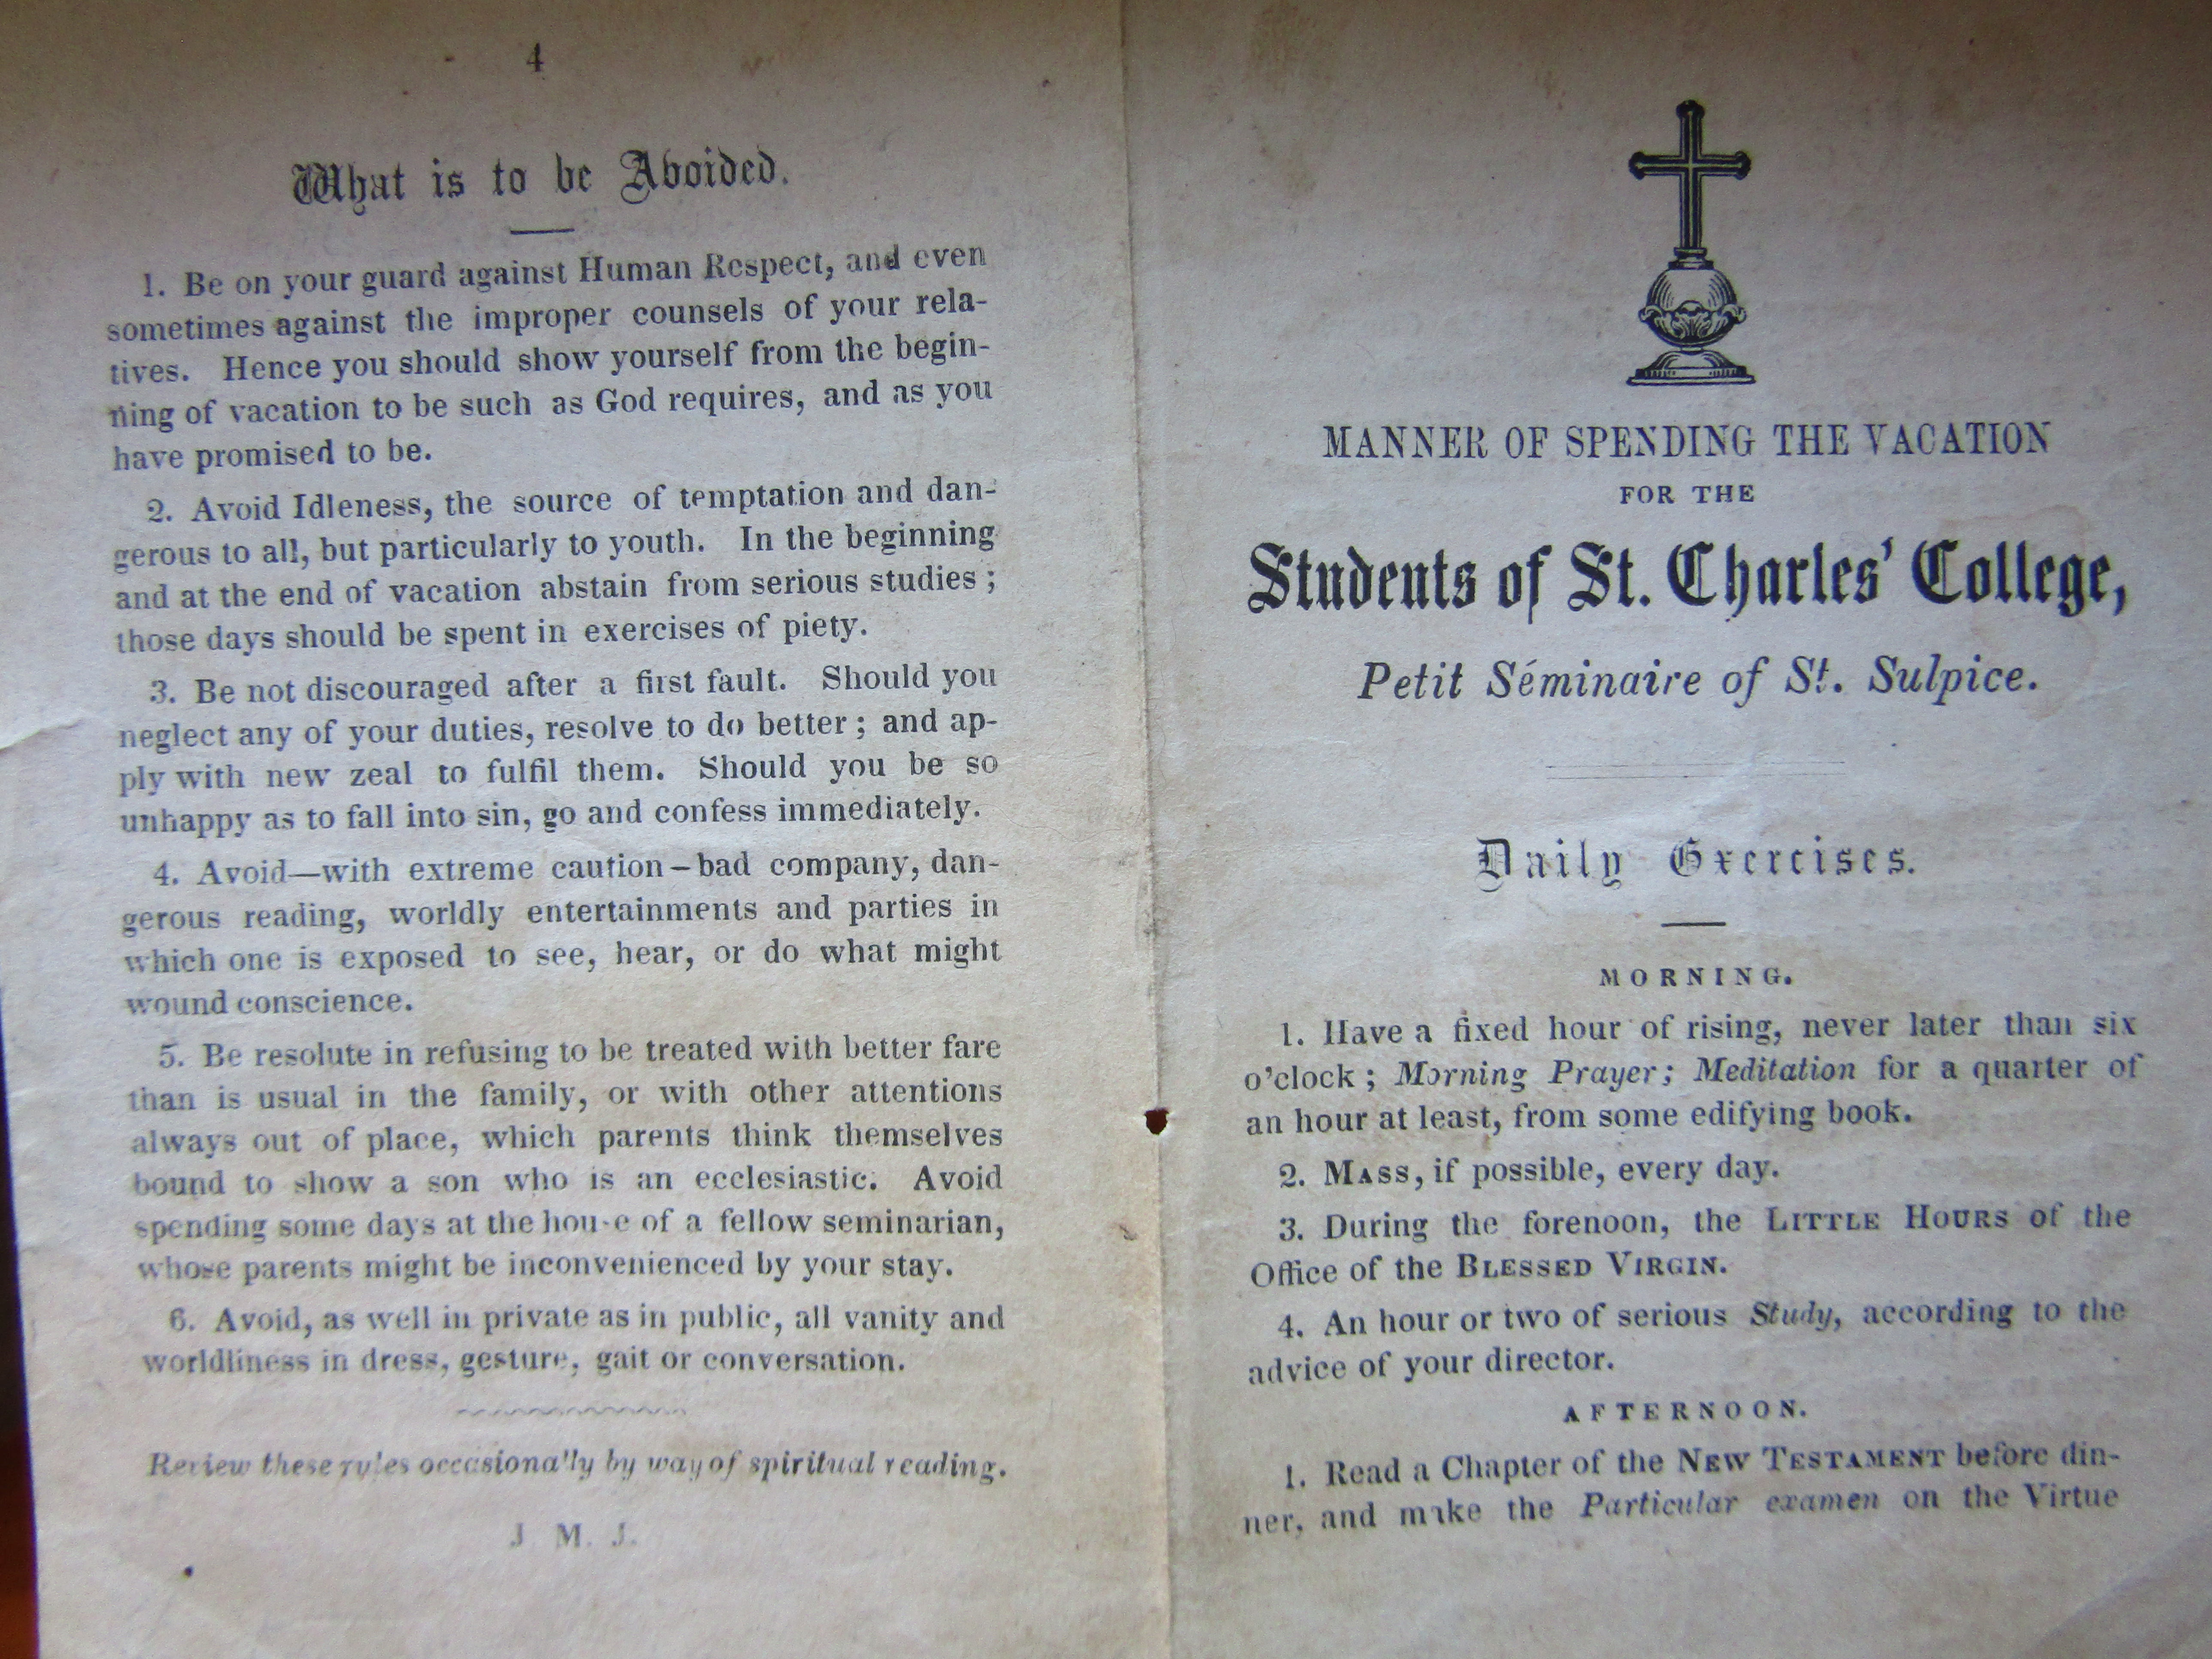 4
What is to be Avoided.
1. Be on your guard against Human Respect, and even
sometimes against the improper counsels of your rela-
tives. Hence you should show yourself from the begin-
ning of vacation to be such as God requires, and as you
have promised to be.
2. Avoid Idleness, the source of temptation and dan-
gerous to all, but particularly to youth. In the beginning
and at the end of vacation abstain from serious studies ;
those days should be spent in exercises of piety.
3. Be not discouraged after a first fault. Should you
neglect any of your duties, resolve to do better ; and ap-
ply with new zeal to fulfil them. Should you be so
unhappy as to fall into sin, go and confess immediately.
4. Avoid—with extreme caution—bad company, dan-
gerous reading, worldly entertainments and parties in
which one is exposed to see, hear, or do what might
wound conscience.
5. Be resolute in refusing to be treated with better fare
than is usual in the family, or with other attentions
always out of place, which parents think themselves
bound to show a son who is an ecclesiastic. Avoid
spending some days at the house of a fellow seminarian,
whose parents might be inconvenienced by your stay.
6. Avoid, as well in private as in public, all vanity and
worldliness in dress, gesture, gait or conversation.
Review these rules occasionally by way of spiritual reading.
J. M. J.
MANNER OF SPENDING THE VACATION
FOR THE
Students of St. Charles' College,
Petit Séminaire of St. Sulpice.
Daily Exercises.
MORNING.
1. Have a fixed hour of rising, never later than six
o'clock ; Morning Prayer; Meditation for a quarter of
an hour at least, from some edifying book.
2. MASS, if possible, every day.
3. During the forenoon, the LITTLE HOURS of the
Office of the BLESSED VIRGIN.
4. An hour or two of serious Study, according to the
advice of your director.
AFTERNOON.
1. Read a Chapter of the NEW TESTAMENT before din-
ner, and make the Particular examen on the Virtue